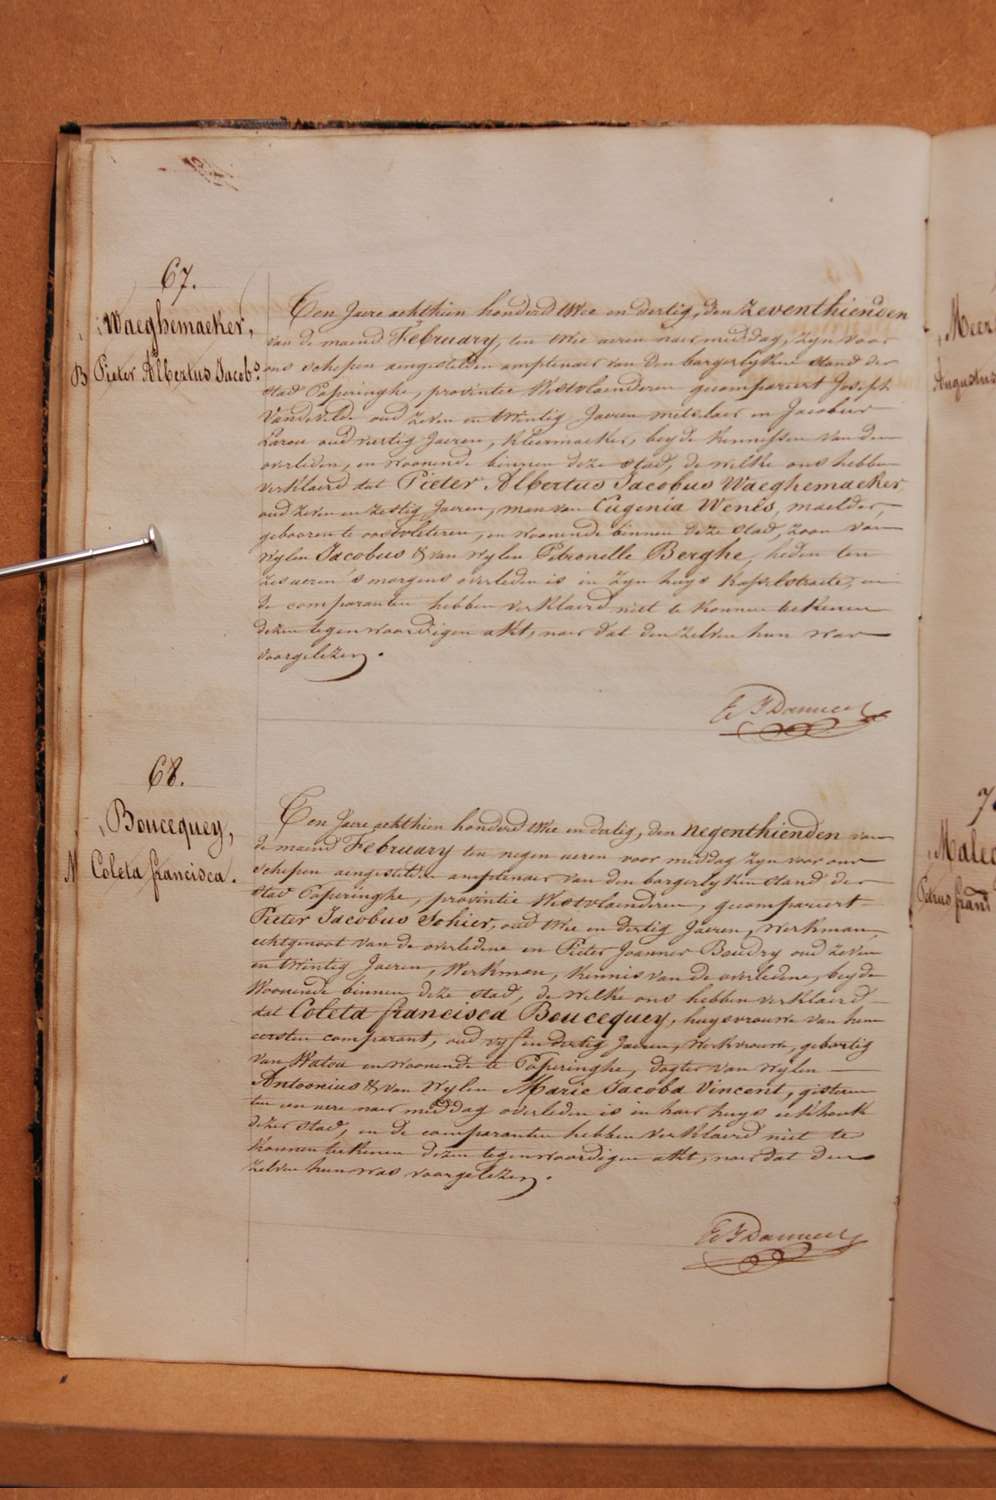 67.
Waeghemaeker,
B Pieter Albertus Jacobs.
Ten Jaere achthien honderd twee en dertig, den zeventhienden
van de maend February, ten twee ueren naer middag, zyn voor
ons schepen aengestelden amptenaer van den borgerlyken stand der
stad Poperinghe, provintie Westvlaenderen gecompareert Joseph
Vandevelde oud zeven en twintig Jaeren metselaer en Jacobus
oud viertig Jaeren, kleermaeker, beyde kennissen van den
overleden, en woonende binnen deze stad, de welke ons hebben
verklaerd dat Pieter Albertus Jacobus Waeghemaeker,
oud zeven en zestig Jaeren, man van Eugenia Wenes, maelder,
gebooren te oostvleteren, en woonende binnen deze stad, zoon van
wylen Jacobus & van wylen Petronelle Berghe, heden ten
zes ueren 's morgens overleden is in zyn huys Kasselstraete, en
de comparanten hebben verklaerd niet te konnen teekenen
dezen tegenwoordigen akt, naer dat den zelven hun was
voorgelezen.
68.
Boucequey,
N Coleta francisca.
Ten Jaere achthien honderd twee en dertig, den negenthienden van
de maend February ten negen ueren voor middag zyn voor ons
schepen aengestelde amptenaer van den borgerlyken stand der
stad Poperinghe, provintie Westvlaenderen, gecompareert
Pieter Jacobus Sohier, oud twee en dertig Jaeren, werkman,
echtgenoot van de overledene en Pieter Joannes Boudry oud zeven
en twintig Jaeren, Werkman, kennis van de overledene, beyde
woonende binnen deze stad, de welke ons hebben verklaerd
dat Coleta francisca Boucequey, huysvrouwe van hun
eersten comparant, oud vyf en dertig Jaeren, werkvrouw, gebortig
van Watou en woonende te Poperinghe, dogter van wylen
Antoonius & van wylen Marie Jacoba Vincent, gisteren
ten een uere naer middag overleden is in haer huys
dezer stad, en de comparanten hebben verklaerd niet te
konnen teekenen dezen tegenwoordigen akt, naer dat den
zelven hun was voorgelezen.
Meez
Augustus
Malec
Petrus frans